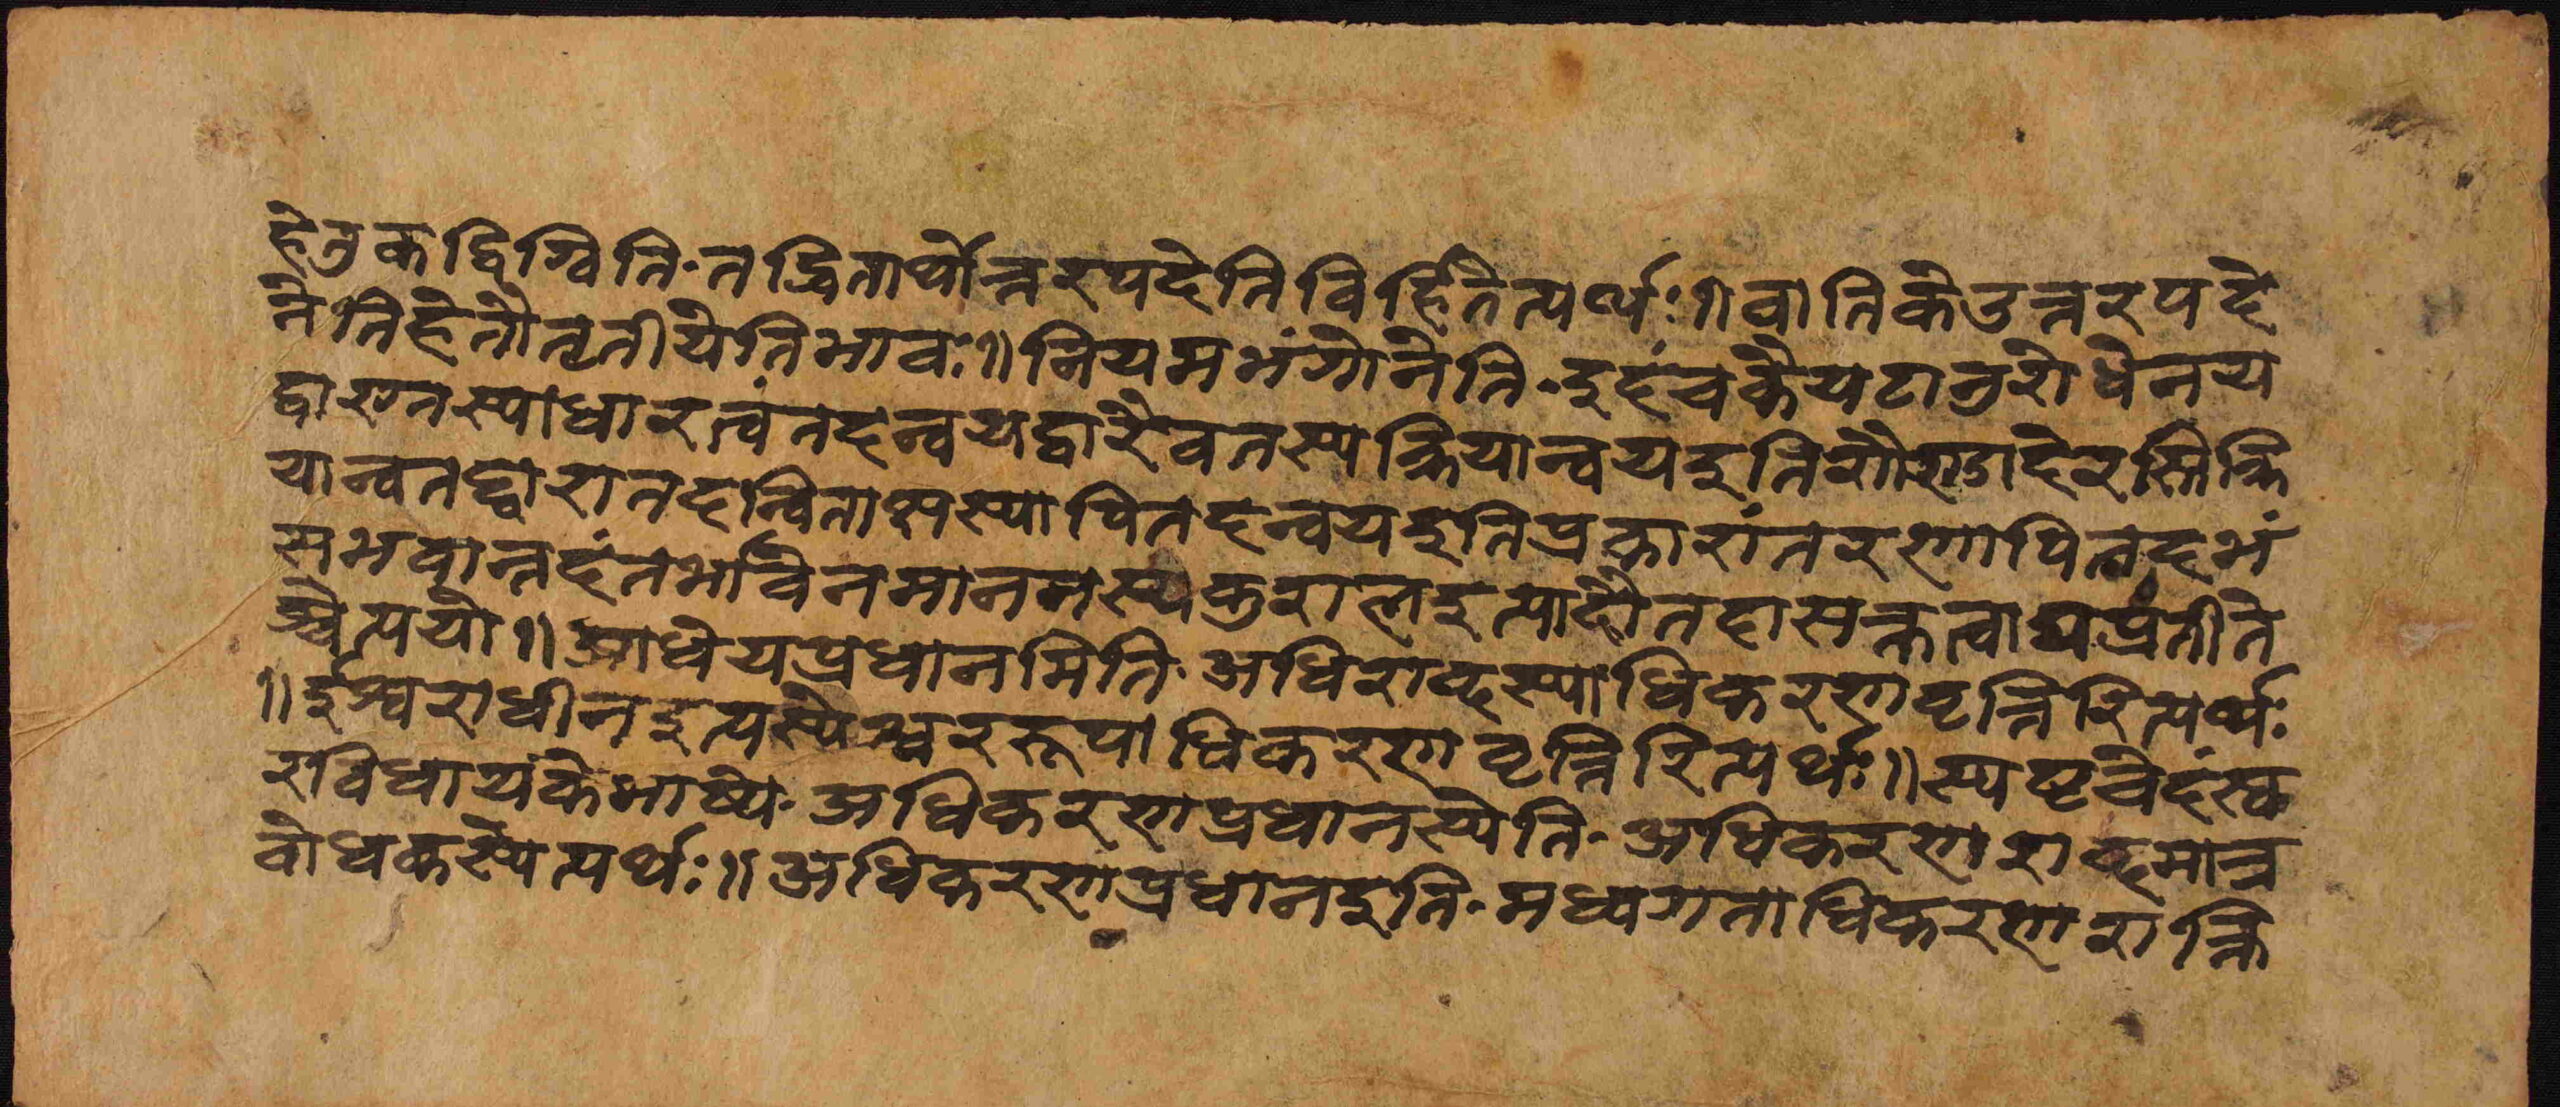 हेतुकद्विग्विति·तद्धितार्थोत्तरपदेतिविहितेत्यर्थः॥वार्तिकेउत्तरपदे
नेतिहेतौतृतीयेतिभावः॥नियमभंगोनेति·इदंचकैयटानुरोधेनय
द्वारातस्याधारत्वंतदन्वयद्वारैवतस्यक्रियान्वयइतिशौण्डादेरस्तिक्रि
यान्वतद्वारातदन्वितास्यापितदन्वयइतिप्रकारांतरणापितदभं
सभवान्नदंतर्भावेनमाननस्यकुशलइत्यादौतदासक्तत्वाद्यप्रतीते
श्चेत्ययो॥आधेयप्रधानमिति·अधिशब्दस्याधिकरणवृत्तिरित्यर्थः
॥ईश्वराधीनइत्यस्येश्वररूपाधिकरणवृत्तिरित्यर्थः॥स्पष्टचेदंस्व
रविधायकेभाष्ये·अधिकरणप्रधानस्येति·अधिकरणशब्दमात्र
बोधकस्येत्यर्थः॥अधिकरणप्रधानइति·मध्यगताधिकरणशक्ति